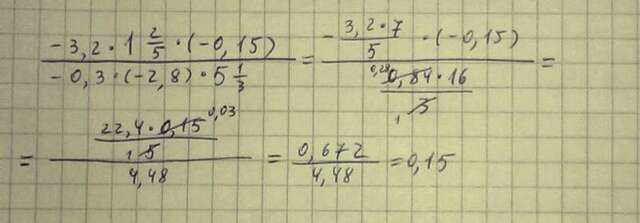 (-3,2 · 1 2/5 · (-0,15)) / (-0,3 · (-2,8) · 5 1/3) = (- (3,2 · 7)/5 · (-0,15)) / ((0,28 0,84 · 16)/(1 3)) =
= ((22,4 · 0,15 0,03)/(1 5)) / 4,48 = 0,672 / 4,48 = 0,15